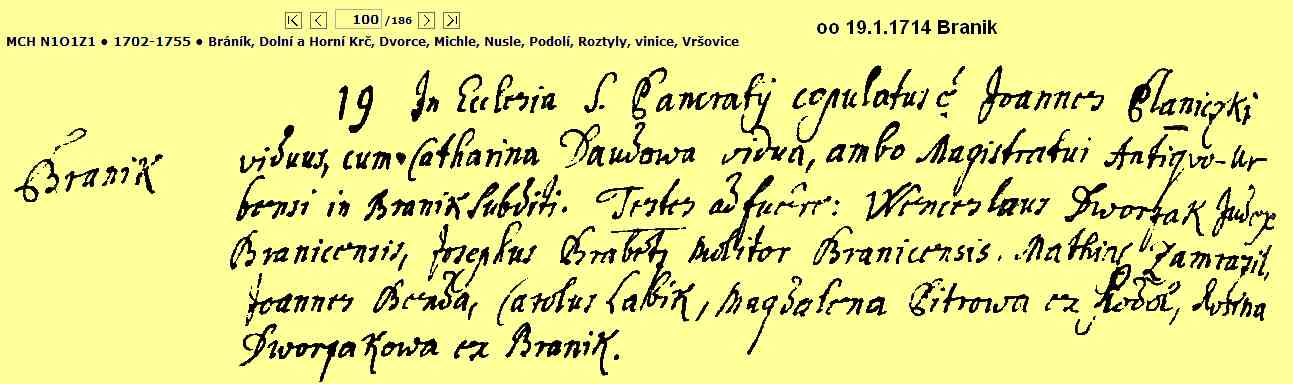 100 /186
oo 19.1.1714 Branik
MCH N1O1Z1 • 1702-1755 • Bráník, Dolní a Horní Krč, Dvorce, Michle, Nusle, Podolí, Roztyly, vinice, Vršovice
19 In Ecclesia S. Pancratij copulatus Joannes Planiczki
Branik
viduus, cum Catharina Daudowa vidua, ambo Magistratui Antiqvo-Ur
bensi in Branik Subditi. Testes adfuêre: Wenceslaus Dworzak Judex
Branicensis, Josephus Brabetz Molitor Branicensis. Mathias Zamrazil,
Joannes Benda, Carolus Labik, Magdalena Pitrowa ex Rosina
Dworzakowa ex Branik.